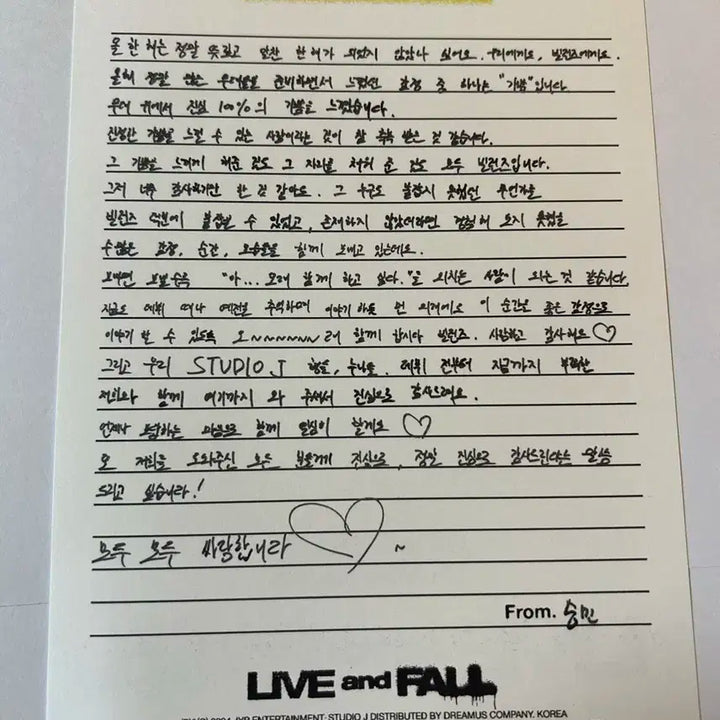 올 한 해는 정말 뜻깊고 알찬 한 해가 되었지 않았나 싶어요. 우리에게도, 빌런즈에게도.
올해 정말 많은 무대들을 준비하면서 느꼈던 감정 중 하나는 "기쁨"입니다
무대 위에서 진심 100%의 기쁨을 느꼈습니다.
진정한 기쁨을 느낄 수 있는 사람이라는 것이 참 축복 받은 것 같습니다.
그 기쁨을 느끼게 해준 것도 그 자리를 채워 준 것도 모두 빌런즈입니다.
그저 너무 감사하기만 한 것 같아요. 그 누구도 붙잡지 못했던 무언가를
빌런즈 덕분에 붙잡을 수 있었고, 존재하지 않았더라면 경험해 보지 못했을
수많은 감정, 순간, 모습들을 함께 보내고 있는데요.
보내면 보낼수록 "아... 오래 함께 하고 싶다."를 외치는 사람이 되는 것 같습니다.
지금도 데뷔 때나 예전을 추억하며 이야기 하듯 먼 미래에도 이 순간을 좋은 감정으로
이야기 할 수 있도록 오~~~~~~래 함께 합시다 빌런즈. 사랑하고 감사해요♡
그리고 우리 STUDIO J 형들, 누나들. 데뷔 전부터 지금까지 부족한
저희와 함께 여기까지 와 주셔서 진심으로 감사드려요.
언제나 보답하는 마음으로 함께 열심히 할게요 ♡
또 저희를 도와주신 모든 분들께 진심으로, 정말 진심으로 감사드린다는 말씀
드리고 싶습니다!
모두 모두 싸랑합니다 ♡ ~
From. 승민
LIVE and FALL
JYP ENTERTAINMENT: STUDIO J DISTRIBUTED BY DREAMUS COMPANY. KOREA